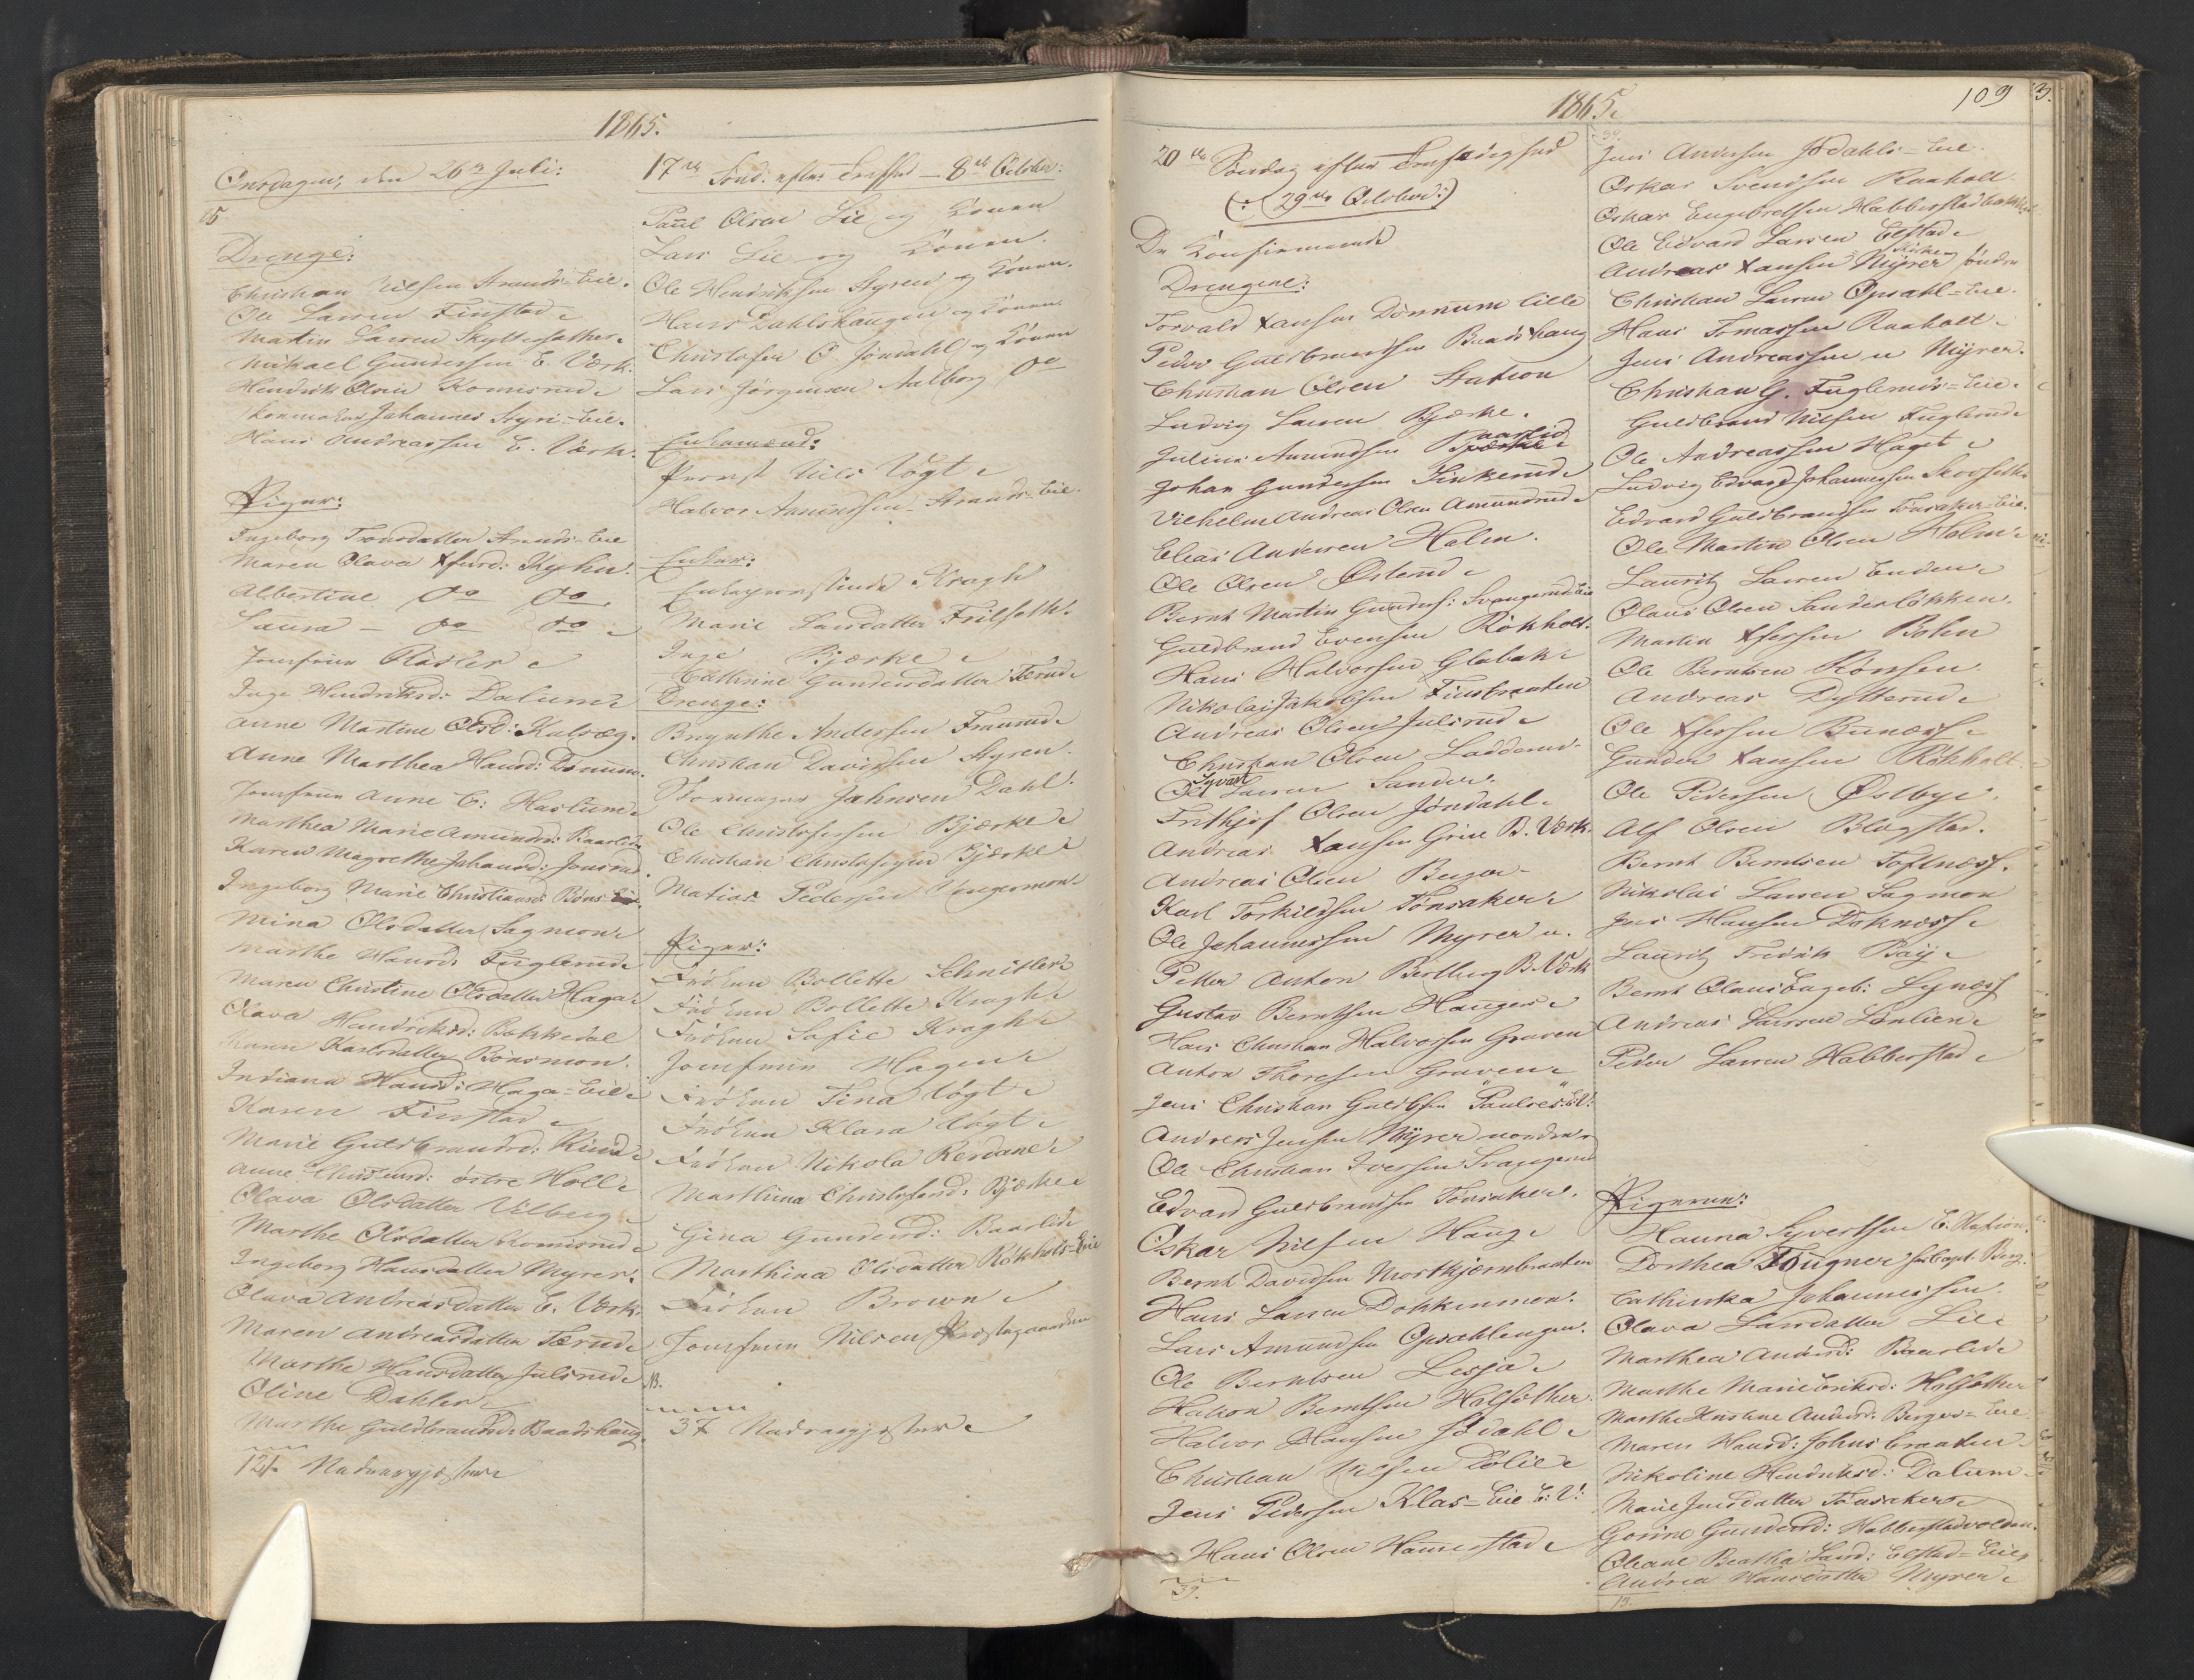 1865.
Onsdagen, den 26de Juli:
65
Drenge:
Christian Nilsen Strands-Eie.
Ole Larsen Finstad
Martin Larsen Skyttesæther
Mikael Gundersen E. Værk.
Hendrik Olsen Komisrud
Skomaker Johannes Styri-Eie.
Hans Andreassen E. Værk.
Piger:
Ingeborg Tronsdatter Strands-Eie
Maren Olava Xfersd:
Albertine Do Do
Laura - Do Do
Jomfruen Rasler
Inge Hendriksd: Dalum
Anne Martine Olsd: Kalvæg.
Anne Marthea Hansd: Dønnum.
Jomfruen Anne C: Haslum
Marthea Marie Amundsd: Baarlid
Karen Magrethe Johansd: Jonsrud
Ingeborg Marie Christiansd: Bøns-Eie.
Mina Olsdatter Sagmoen
Marthe Hansd: Fuglerud
Maren Christine Olsdatter Haga
Olava Hendriksd: Bakkedal
Karen Karlsdatter Bønsmoen.
Indiana Hansd: Haga-Eie
Karen Finstad
Marie Guldbrandsd: Ruud
Anne Christensd: østre Holl
Olava Olsdatter Vilberg
Marthe Olsdatter Komisrud
Ingeborg Hansdatter Myrer.
Olava Andreasdatter E. Værk.
Maren Andreasdatter Tærud
Marthe Hansdatter Julsrud
Oline Dahler
Marthe Guldbrandsd: Baadshaug.
121. Nadvergjæster
17de Sønd: efter Trefhed - 8de October:
Paul Olsen Lie og Konen
Lars Lie og Konen.
Ole Hendriksen Styren og Konen.
Hans Dahlshaugen og Konen
Christofer O. Jøndahl og Konen
Lars Jørgensen Aalborg Do
Enkemænd:
Provst Nils Vogt
Halvor Amundsen Strands-Eie.
Enker:
Enkeprovstinde Kragh
Marie Larsdatter Frilseth
Inge Bjærke
Cathrine Gundersdatter Tærud
Drenge:
Brynthe Andersen Framrud
Christian Davidsen Styren.
Skomager Johnsen Dahl.
Ole Christofersen Bjærke
Christian Christofersen Bjærke
Matias Pedersen
Piger:
Frøken Bollette Schnitler
Frøken Bollette Kragh
Frøken Sofie Kragh
Jomfruen Hagen
Frøken Tina Vogt
Frøken Klara Vogt
Frøken Nikola Kerdane
Marthina Christofersd: Bjærke
Gina Gundersd: Baarlid
Marthina Olsdatter Røkholt-Eie
Frøken Brown
Jomfruen Nilsen Præstegaarden
13.
37 Nadvergjæster
1865.
109
3.
20de Søndag efter Trefoldighed
(: 29de October:)
De Konfirmerede
Drengene:
Torvald Xansen Dønnum lille
Peder Guldbrandsen Baadshaug
Christian Olsen Station
Ludvig Larsen Bjærke.
Julius Amundsen Bjærke Baarlid
Johan Gundersen Finkerud
Vilhelm Andreas Olsen Amundrud
Elias Andersen Holm.
Ole Olsen Østerud
Bernt Martin Gunders: Svangerud-Eie
Guldbrand Evensen Røkholt.
Hans Halvorsen Globak
Nikolai Jakobsen Finsbraaten
Andreas Olsen Julsrud
Christian Olsen Ladderud.
Ole Syvert Larsen Sander.
Frithjof Olsen Jøndahl
Andreas Xansen Grine B. Værk.
Andreas Olsen Berger
Karl Torkildsen Tønsaker
Ole Johannessen Myrer u.
Petter Anton Bertberg B. Værk
Gustav Berntsen Hanger
Hans Christian Halvorsen Graven
Anton Thoresen Graven
Jens Christian Guldbsen "Paulses" E.V.
Andreas Jensen Myrer nordre
Ole Christian Iversen Svangerud
Edvard Guldbrandsen Tønsaker.
Oskar Nilsen Haug
Bernt Davidsen Mortkjærnbraaten
Hans Larsen Dokkenmoen.
Lars Amundsen Opsahlengen.
Ole Berntsen Lesja
Hakon Berntsen Holsæther
Halvor Hansen Jødahl
Christian Nilsen Dølie
Jens Pedersen Klas-Eie E.V.
Hans Olsen Hammerstad
39.
39.
Jens Andersen Jødahls-Eie.
Oskar Svendsen Raaholt
Oskar Engebretsen Habberstadbakken
Ole Edvard Larsen Elstad
Andreas Xansen Myrer søndre
Christian Larsen Opsahl-Eie.
Hans Tomassen Raaholt
Jens Andreassen u Myrer.
Christian G. Fuglerud-Eie
Guldbrand Nilsen Fuglerud
Ole Andreassen Haget
Ludvig Edvard Johannessen Skovseth
Edvard Guldbrandsen Tønsaker-Eie.
Ole Martin Olsen Holm
Lauritz Larsen Enden
Olaus Olsen Sanderløkken.
Martin Xfersen Bohn
Ole Berntsen Rønsen.
Andreas Dytterud
Ole Xfersen Bunæss
Gunder Xansen Røkholt.
Ole Pedersen Østby
Alf Olsen Blegstad.
Bernt Berntsen Tofsnæss.
Nikolai Larsen Sagmoen
Jens Hansen Doknæss
Lauritz Fredrik Bay
Bernt Olaus Engeb: Lynæss
Andreas Larsen Lønlien
Peder Larsen Habberstad
Pigerne:
Hanna Syvertsen E. Station.
Dorthea Fougner hos Capt. Berg.
Cathinka Johannessen.
Olava Larsdatter Lie
Marthea Andersd: Baarlid
Marthe Marie Eriksd: Holsæther
Marthe Kristine Andersd: Berger-Eie
Maren Hansd: Johnsbraaten
Nikoline Hendriksd: Dalum
Marie Jensdatter Tønsaker
Gorine Gundersd: Habberstadvolden.
Oleane Beatha Larsd: Elstad-Eie
Andrea Hansdatter Myrer
13.